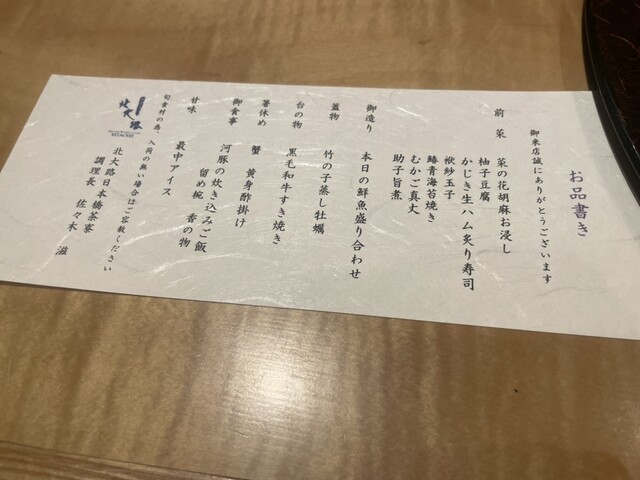 お品書き
御来店誠にありがとうございます
前菜 菜の花胡麻お浸し
柚子豆腐
かじき生ハム炙り寿司
袱紗玉子
鰆青海苔焼き
むかご真丈
助子旨煮
御造り 本日の鮮魚盛り合わせ
蓋物 竹の子蒸し牡蠣
台の物 黒毛和牛すき焼き
箸休め 蟹 黄身酢掛け
御食事 河豚の炊き込みご飯
留め椀 香の物
甘味 最中アイス
旬食材の為、入荷の無い場合はご容赦ください
北大路
北大路日本橋茶寮
調理長 佐々木 滋